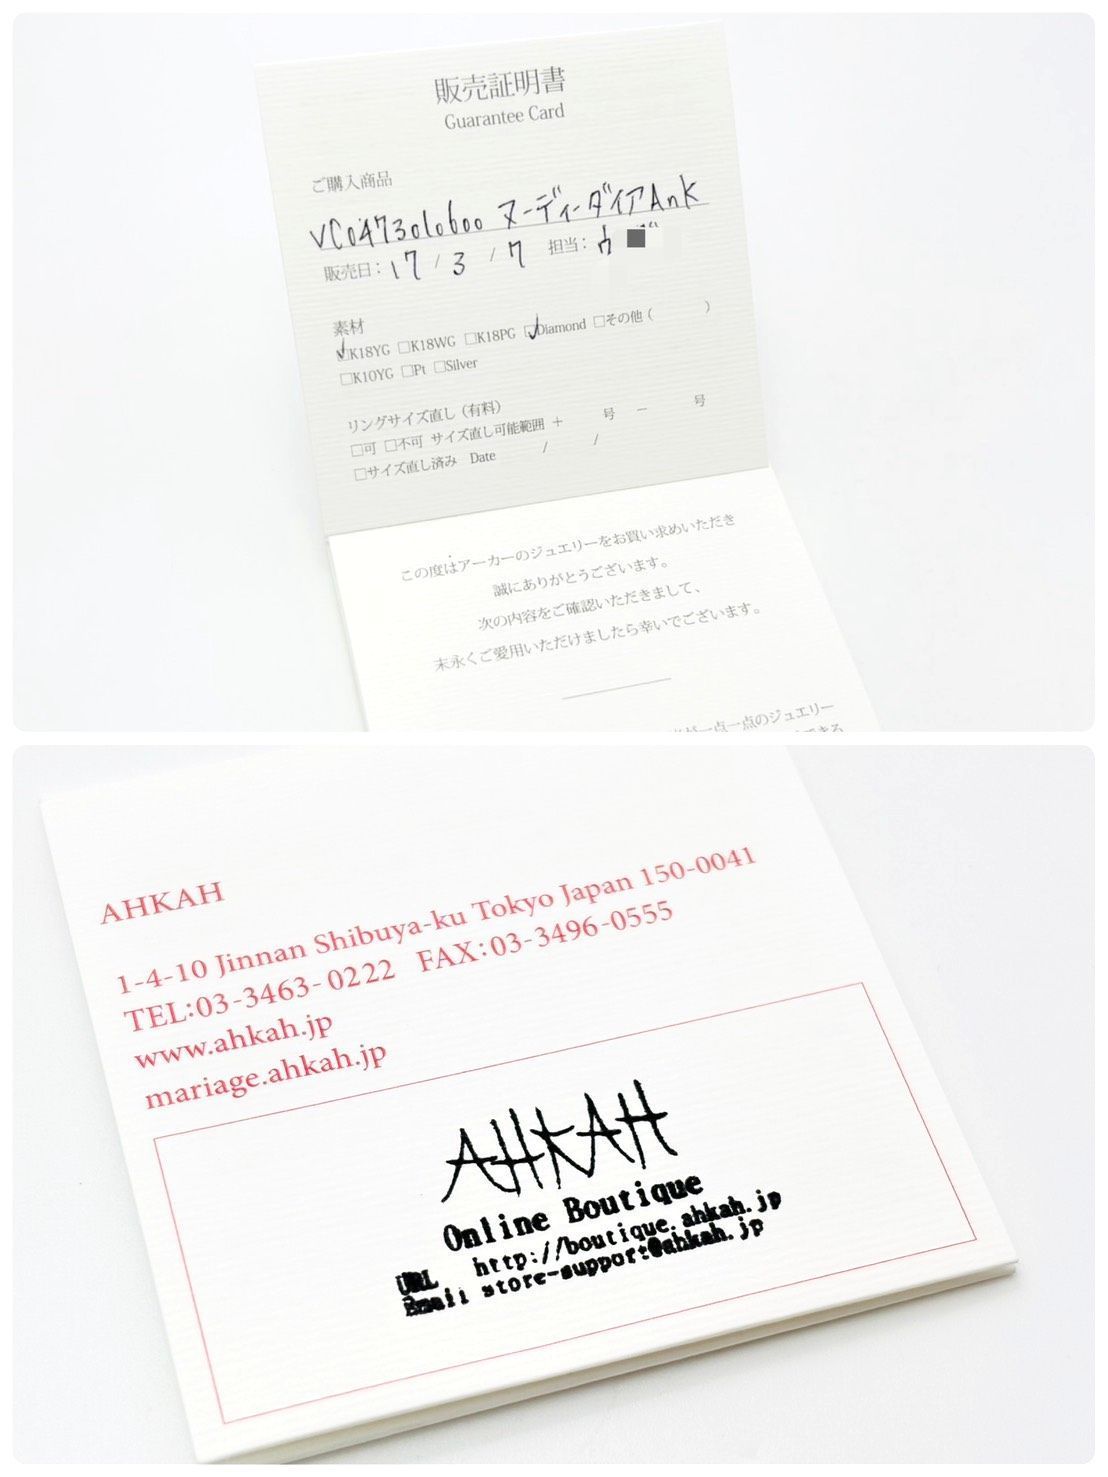 販売証明書
Guarantee Card
ご購入商品
VC0473010600 ヌーディーダイアAnk
販売日： 17 / 3 / 7 担当：
素材
☑K18YG □K18WG □K18PG ☑Diamond □その他（ ）
□K10YG □Pt □Silver
リングサイズ直し（有料）
□可 □不可 サイズ直し可能範囲 ＋ 号 － 号
□サイズ直し済み Date / /
この度はアーカーのジュエリーをお買い求めいただき
誠にありがとうございます。
次の内容をご確認いただきまして、
末永くご愛用いただけましたら幸いでございます。
一点一点のジュエリー
できる
AHKAH
1-4-10 Jinnan Shibuya-ku Tokyo Japan 150-0041
TEL:03-3463-0222 FAX:03-3496-0555
www.ahkah.jp
mariage.ahkah.jp
AHKAH
Online Boutique
URL http://boutique.ahkah.jp
Email store-support@ahkah.jp